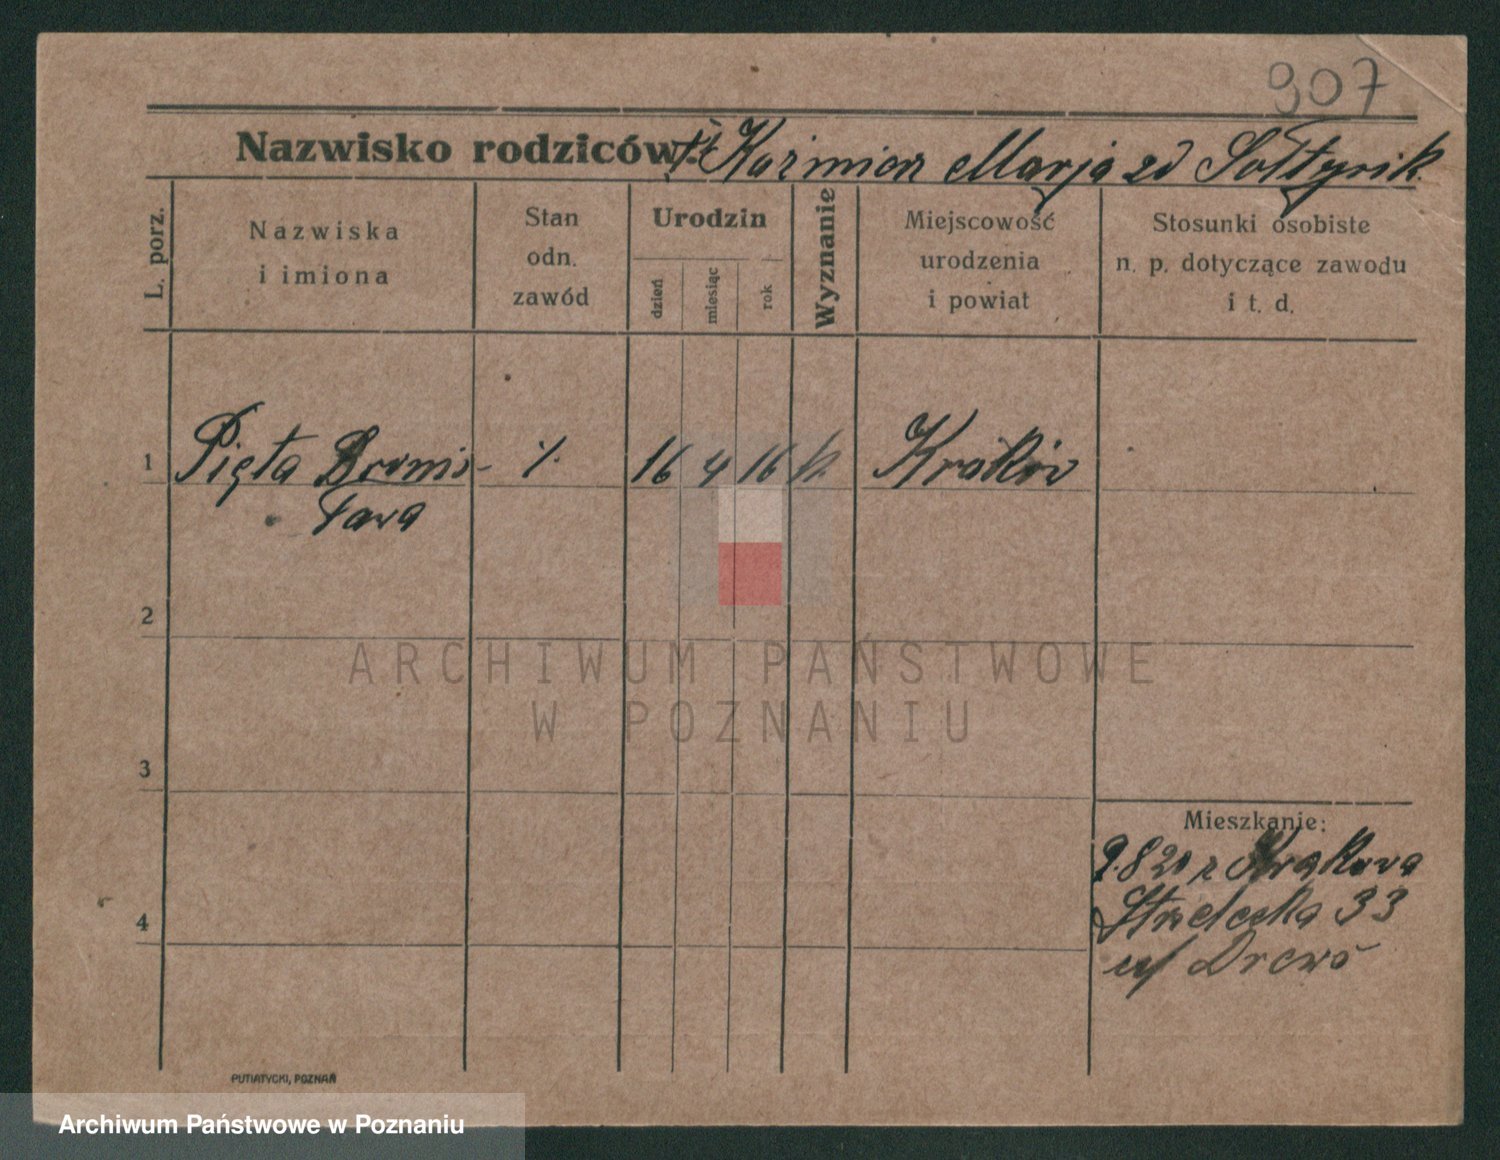 907
Nazwisko rodziców: Kazimierz Marja zd Sołtysik
L. porz.
Nazwiska
i imiona
Stan
odn.
zawód
Urodzin
dzień
miesiąc
rok
Wyznanie
Miejscowość
urodzenia
i powiat
Stosunki osobiste
n. p. dotyczące zawodu
i t. d.
1 Pięta Broni- 16 4 16 k. Kraków
sława
2
3
4
Mieszkanie:
9.8 20 z Krakowa
Strzelecka 33
PUTIATYCKI, POZNAŃ
ARCHIWUM PAŃSTWOWE
W POZNANIU
Archiwum Państwowe w Poznaniu